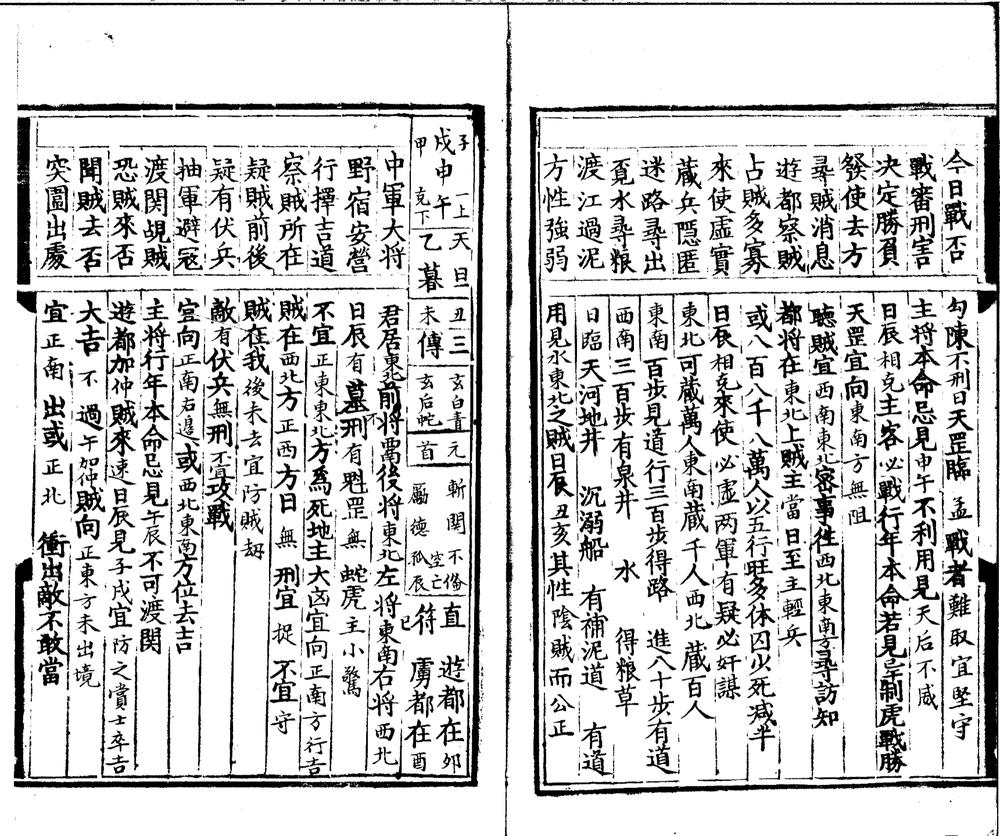 今日戰否 勾陳不刑日天罡臨孟戰者難取宜堅守
戰審刑害 主將本命忌見申午不利用見天后不威
决定勝負 日辰相克主客必戰行年本命若見制虎戰勝
發使去方 天罡宜向東南方無阻
尋賊消息 聴賊宜西南東北密事徃西北東南尋訪知
遊都察賊 都將在東北上賊主當日至主輕兵
占賊多寡 或八百八千八萬人以五行旺多休囚少死减半
來使虛實 日辰相克來使必虛两軍有疑必奸謀
藏兵隱匿 東北可藏萬人東南藏千人西北藏百人
迷路尋出 東南百步見道行三百步得路 進八十步有道
覔水尋粮 西南三百步有泉井 水 得粮草
渡江過泥 日臨天河地井 沉溺船 有補泥道 有道
方性強弱 用見水東北之賊日辰丑亥其性陰賊而公正
甲戌子
申午 一上克下
天乙 旦暮 丑未
三傳 玄白青 玄后蛇
元首
斬關不偹 勵德孤辰 空亡
直符 巳
遊都在卯 虜都在酉
中軍大將 君居東北前將不寓後將東北左將東南右將西北
野宿安營 日辰有墓刑有魁罡無蛇虎主小驚
行擇吉道 不宜正東東北方爲死地主大凶宜向正南方行吉
察賊所在 賊在西北方正西方日無刑宜捉不宜守
疑賊前後 賊在我後未去宜防賊刼
疑有伏兵 敵有伏兵無刑不宜攻戰
抽軍避冦 宜向正南右邊或西北東南方位去吉
渡関覘賊 主將行年本命忌見午辰不可渡関
恐賊來否 遊都加仲賊來速日辰見子戌宜防之賞士卒吉
聞賊去否 大吉不過午加仲賊向正東方未出境
突圍出處 宜正南出或正北 衝出敵不敢當